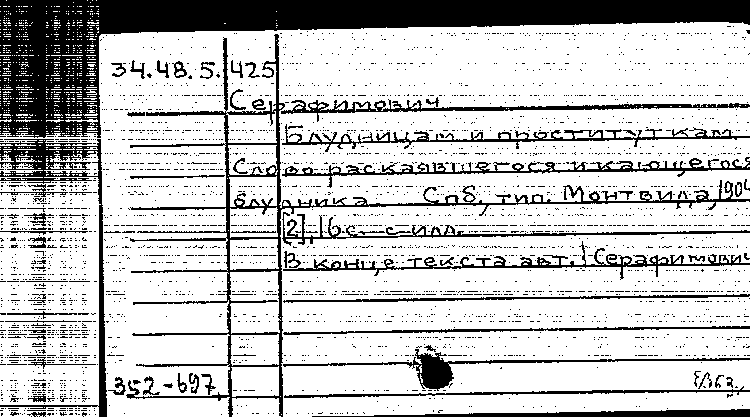 34.48.5.425
Серафимович
Блудницам и проституткам
Слово раскаявшегося и кающегося
блудника. Спб., тип. Монтвида, 1904
[2], 16с. с илл.
В конце текста авт.: Серафимович
352-697.